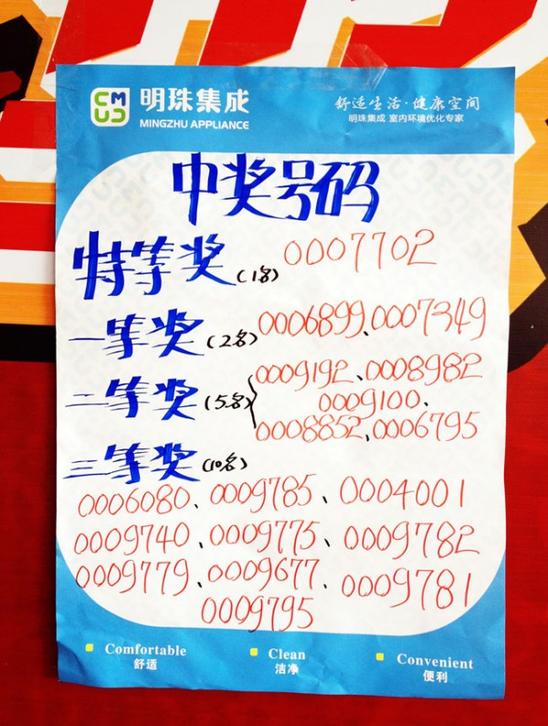 CMJC
明珠集成
MINGZHU APPLIANCE
舒适生活·健康空间
明珠集成 室内环境优化专家
中奖号码
特等奖(1名) 0007702
一等奖(2名) 0006899、0007349
二等奖(5名) 0009192、0008982
0009100、
0008852、0006795
三等奖(10名)
0006080、0009785、0004001
0009740、0009775、0009782
0009779、0009677、0009781
0009795
Comfortable Clean Convenient
舒适 洁净 便利